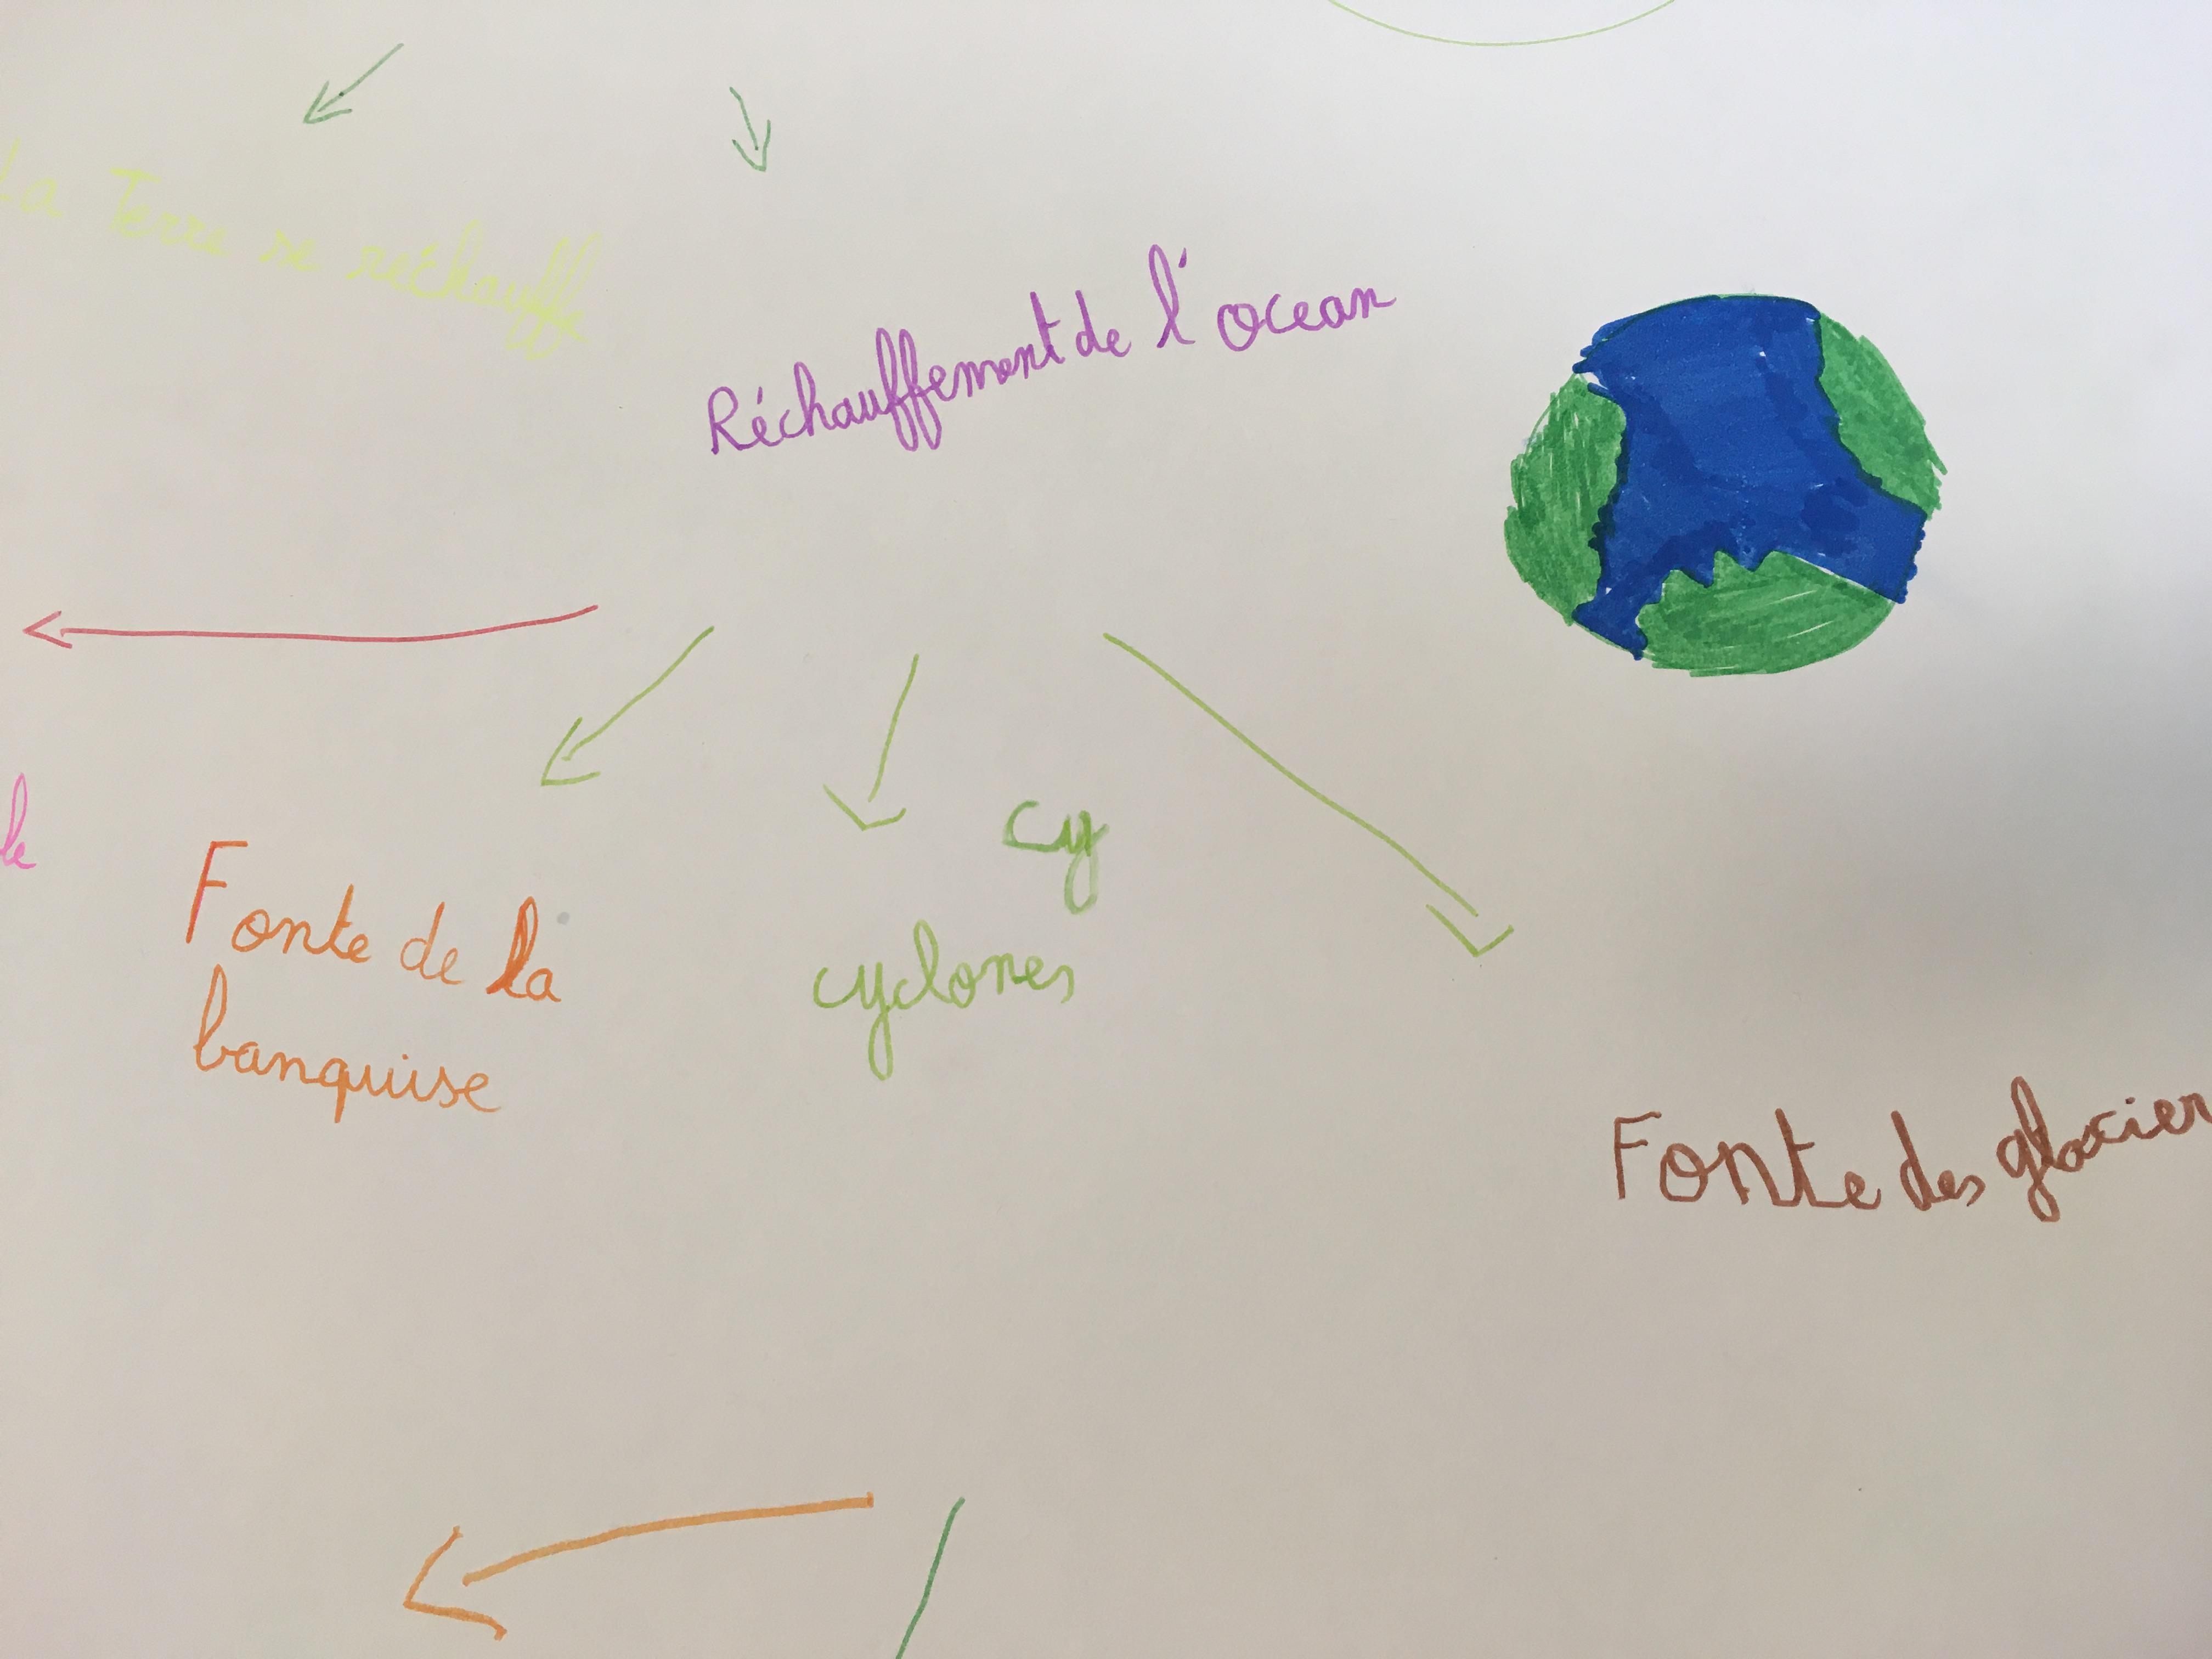 La Terre se réchauffe
Réchauffement de l'ocean
le
Fonte de la
banquise
cy
cyclones
Fonte des glacier